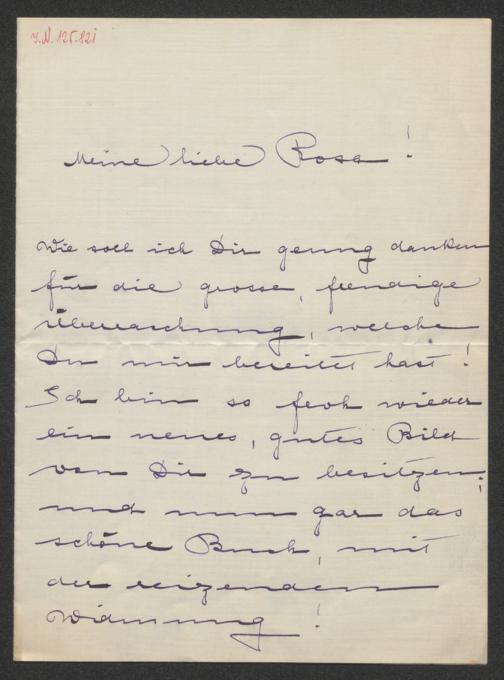 J.N. 125.821
Meine liebe Rosa!
Wie soll ich Dir genug danken
für die grosse, freudige
Überraschung, welche
Du mir bereitet hast!
Ich bin so froh wieder
ein neues, gutes Bild
von Dir zu besitzen;
und nun gar das
schöne Buch, mit
der reizenden
Widmung!